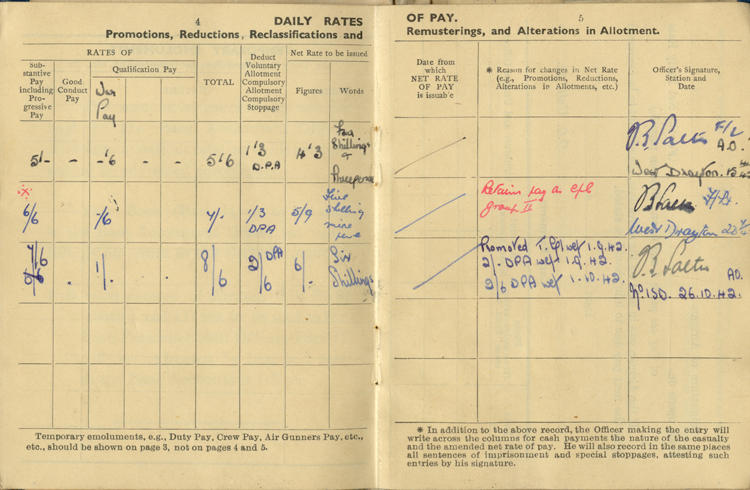 4
DAILY RATES
Promotions, Reductions, Reclassifications and
RATES OF
Sub-
stantive
Pay
including
Pro-
gressive
Pay
Good
Conduct
Pay
Qualification Pay
War
Pay
TOTAL
Deduct
Voluntary
Allotment
Compulsory
Allotment
Compulsory
Stoppage
Net Rate to be issued
Figures
Words
5/- - -/6 - - 5/6 1/3 D.P.A 4/3 Four
Shillings
&
Threepence
6/6 -/6 7/- 1/3 DPA 5/9 Five
shilling
nine
pence
7/6 1/- 8/6 2/6 DPA 6/- Six
Shillings
Temporary emoluments, e.g., Duty Pay, Crew Pay, Air Gunners Pay, etc.,
etc., should be shown on page 3, not on pages 4 and 5.
5
OF PAY.
Remusterings, and Alterations in Allotment.
Date from
which
NET RATE
OF PAY
is issuable
* Reason for changes in Net Rate
(e.g., Promotions, Reductions,
Alterations in Allotments, etc.)
Officer's Signature,
Station and
Date
F/L
A.O.
West Drayton
Retains pay as cpl
group II
West Drayton
Promoted T. Cpl wef 1.9.42.
2/- DPA wef 1.9.42.
2/6 DPA wef 1.10.42.
AO.
26.10.42.
* In addition to the above record, the Officer making the entry will
write across the columns for cash payments the nature of the casualty
and the amended net rate of pay. He will also record in the same places
all sentences of imprisonment and special stoppages, attesting such
entries by his signature.